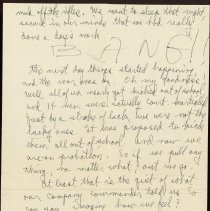 mile off the idea. We want to sleep that night
secure in our minds that we had really
done a day's work.
BANG!
The next day things started happening
and the war was on. Oh my goodness.
Well, all of us nearly got kicked out of school
and 14 men were actually court martialed
just by a stroke of luck, we were not the
lucky ones. It was proposed to kick
them all out of school. And now we
are on probation. So if we pull any
thing, no matter what, out we go.
At least that is the gist of what
our Company Commander told us. So
can you imagine how we feel?